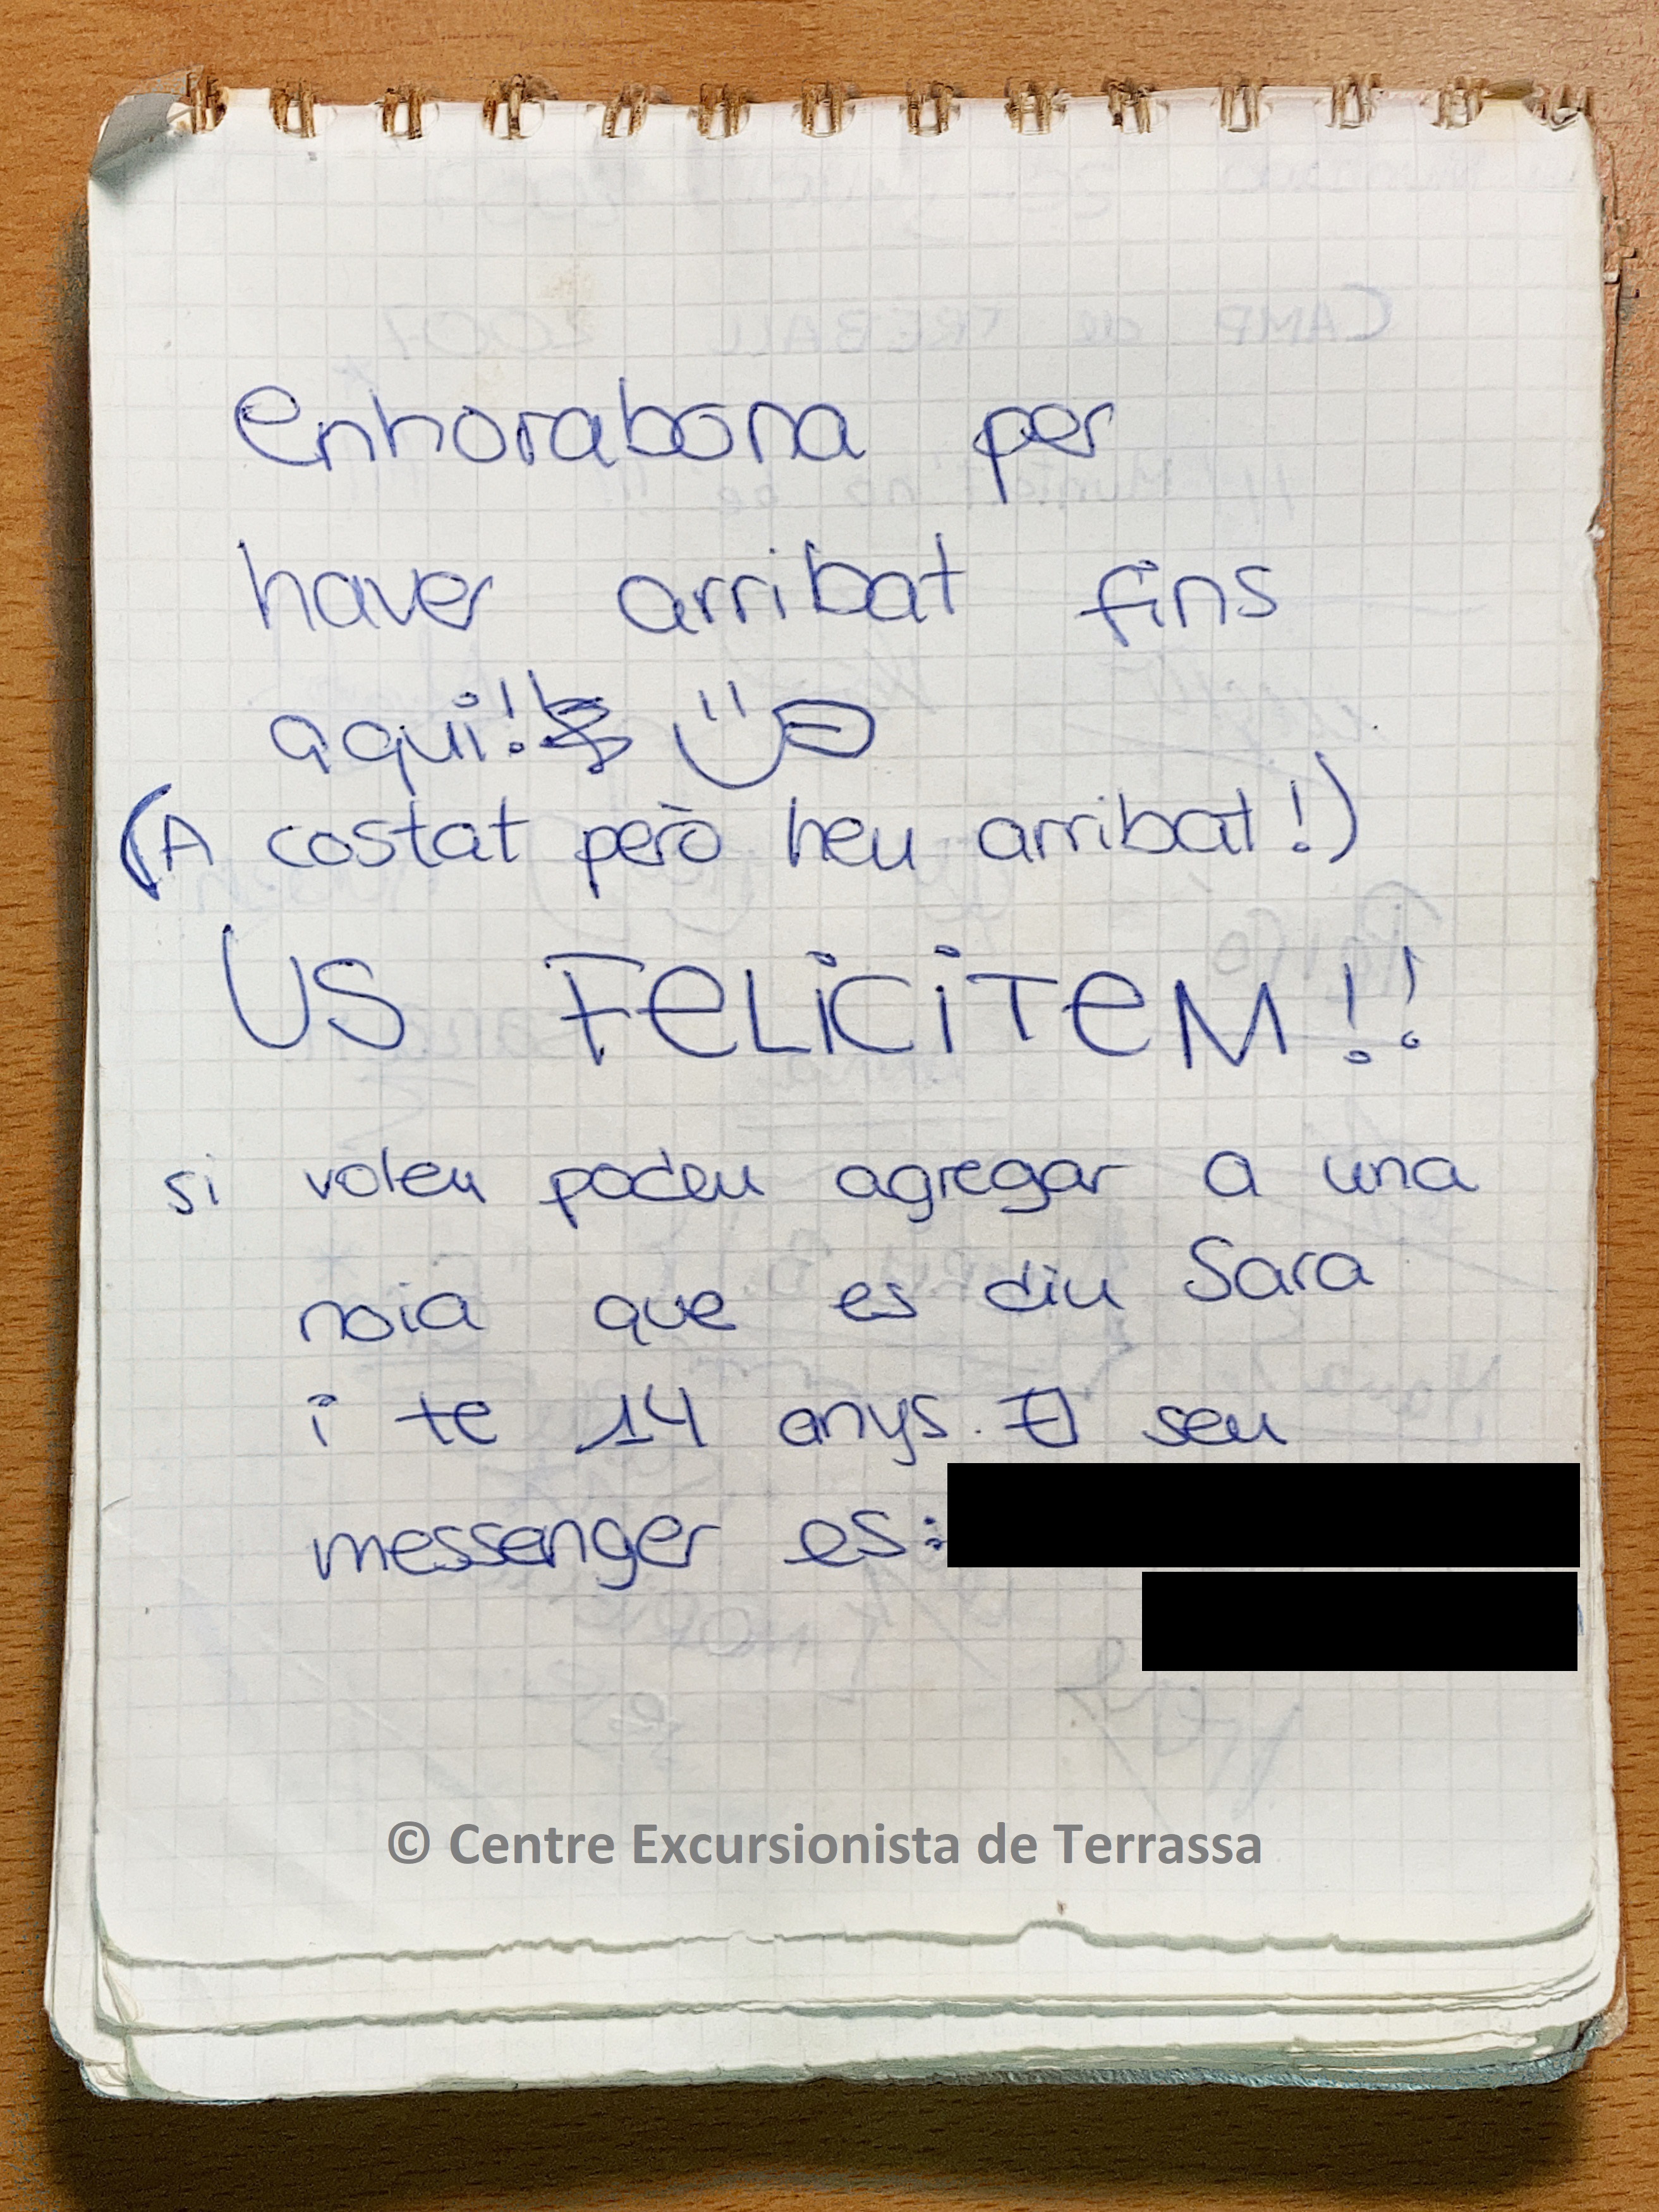 enhorabona per
haver arribat fins
aqui!!
(A costat però heu arribat!)
US FELICITEM!!
si voleu podeu agregar a una
noia que es diu Sara
i te 14 anys. El seu
messenger es:
© Centre Excursionista de Terrassa